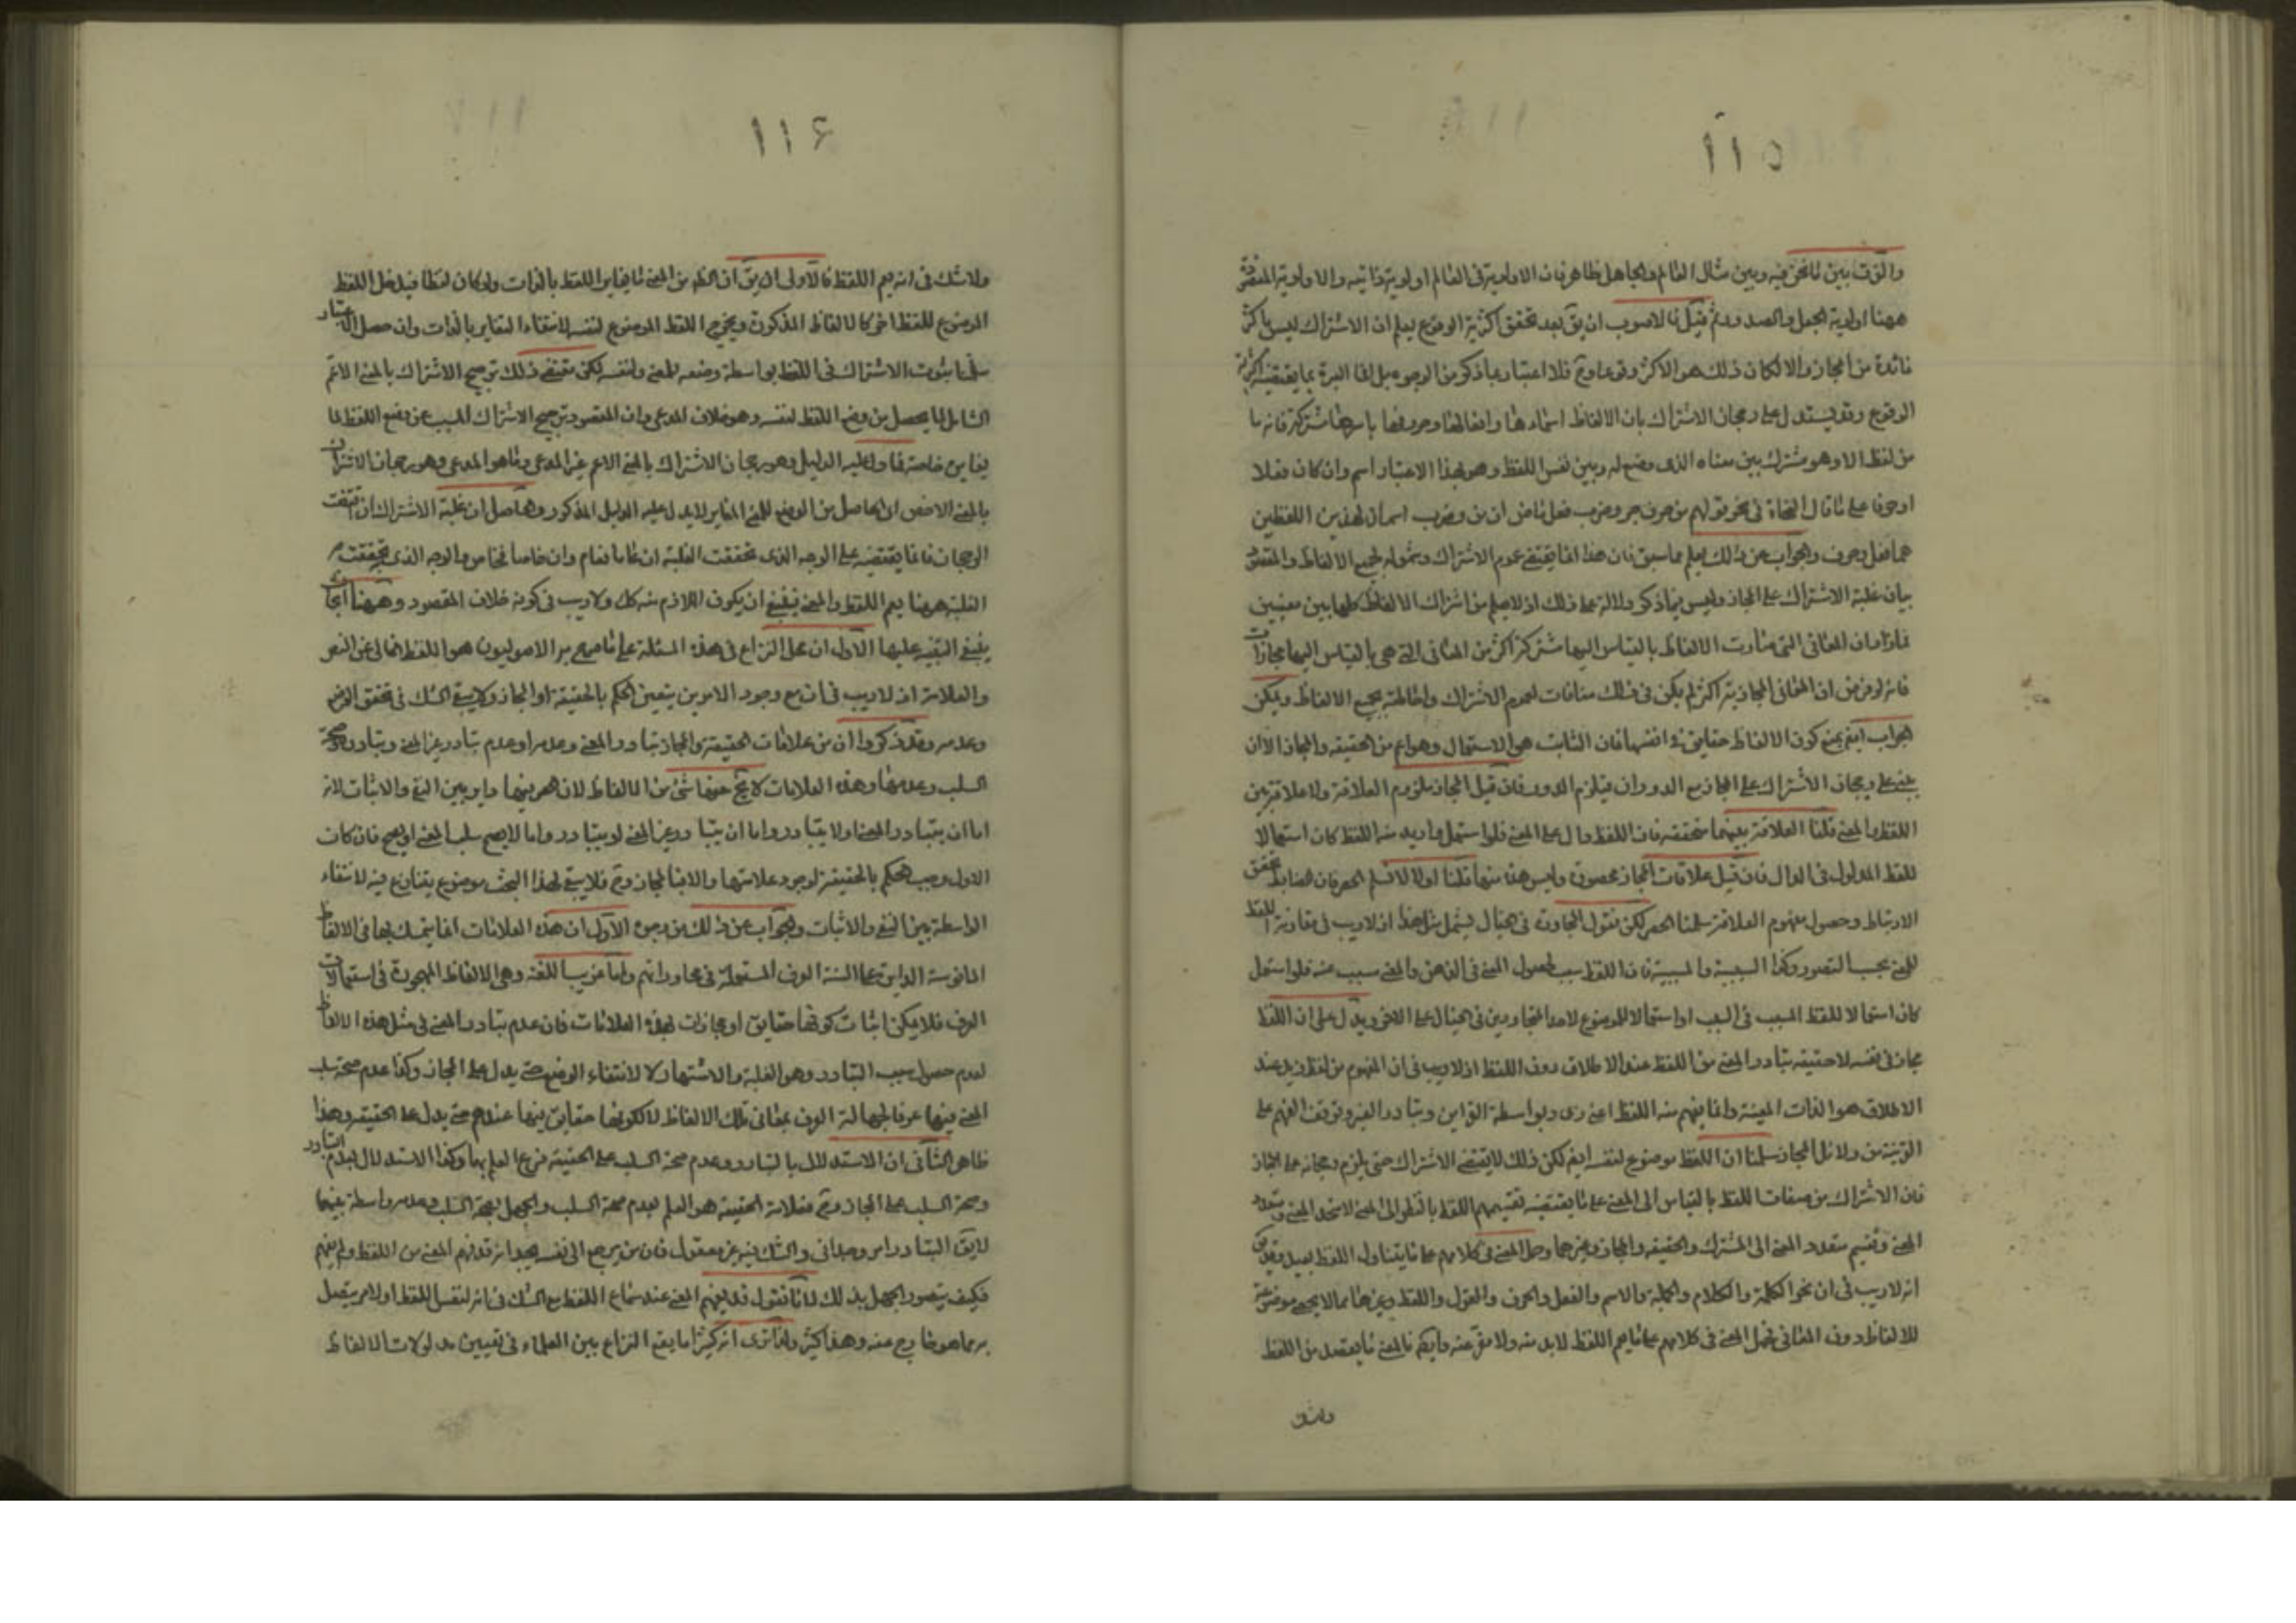 ١١٥
والفرق بين ما نحن فيه وبين مثال العالم والجاهل ظاهر فان الاولوية في العالم اولوية ذاتية والاولوية
ههنا اولوية الجعل والصدور ثم قيل فالاصوب ان يق بعد تحقق اكثرية الوقوع يعلم ان الاشتراك ليس باكثر
فائدة من المجاز والا لكان ذلك هو الاكثر وقوعا وح فلا اعتبار بما ذكر من الوجوه بل انما العبرة بما يقتضيه اكثرية
الوقوع وقد يستدل على رجحان الاشتراك بان الالفاظ اسماءها وافعالها وحروفها باسرها مشتركة فانه ما
من لفظ الا وهو مشترك بين معناه الذى وضع له وبين نفس اللفظ وهو بهذا الاعتبار اسم وان كان فعلا
او حرفا على ما قال النحاة في نحو قولهم من حرف جر وضرب فعل ماض ان من وضرب اسمان لهذين اللفظين
هما فعل وحرف والجواب عن ذلك يعلم مما سبق فان هذا انما يقتضى عموم الاشتراك وشموله لجميع الالفاظ والمقصود
بيان غلبة الاشتراك على المجاز وليس فيما ذكر دلالة على ذلك اذ لا يعلم من اشتراك الالفاظ كلها بين معنيين
فما زاد ان المعاني التى صارت الالفاظ بالقياس اليها مشتركة اكثر من المعاني التى هى بالقياس اليها مجازات
فانه لو فرض ان المعاني المجازية اكثر لم يكن في ذلك منافات لعموم الاشتراك واحاطته بجميع الالفاظ ويمكن
الجواب ايضا بمنع كون الالفاظ حقايق في انفسها فان الثابت هو الاستعمال وهو اعم من الحقيقة والمجاز الا ان
يبنى على رجحان الاشتراك على المجاز مع الدوران فيلزم الدور فان قيل المجاز ملزوم العلاقة ولا علاقة بين
اللفظ والمعنى قلنا العلاقة بينهما متحققة فان اللفظ دال على المعنى فلو استعمل واريد منه اللفظ كان استعمالا
للفظ المدلول في الدال فان قيل علاقات المجاز محصورة وليس هذه منها قلنا اولا لا نسلم الحصر فان الضابط تحقق
الارتباط وحصول مفهوم العلاقة سلمنا الحصر لكن نقول المجاورة في الخيال يشمل مثل هذا اذ لا ريب في مقارنة اللفظ
للمعنى بحسب التصور وكذا السببية والمسببية فان اللفظ سبب لحصول المعنى في الذهن والمعنى مسبب عنه فلو استعمل
كان استعمالا للفظ المسبب في السبب او استعمالا للموضوع لاحد المتجاورين في الخيال على الاخر ويدل على ان اللفظ
مجاز في نفسه لا حقيقة تبادر المعنى من اللفظ عند الاطلاق دون اللفظ اذ لا ريب في ان المفهوم من لفظ زيد عند
الاطلاق هو الذات المعينة وانما يفهم منه اللفظ اعنى زى د بواسطة القراين وتبادر الغير وتوقف الفهم على
القرينة من دلائل المجاز سلمنا ان اللفظ موضوع لنفسه ايضا لكن ذلك لا يقتضى الاشتراك حتى يلزم رجحانه على المجاز
فان الاشتراك من صفات اللفظ بالقياس الى المعنى على ما يقتضيه تقسيمهم اللفظ بالنظر الى المعنى لا متحد المعنى ومتعدد
المعنى وتقسيم متعدد المعنى الى المشترك والحقيقة والمجاز وغيرهما وحمل المعنى في كلامهم على ما يتناول اللفظ بعيد
انه لا ريب في ان نحو الكلمة والكلام والجملة والاسم والفعل والحرف والقول واللفظ وغيرها مما لا يحصى موضوعة
للالفاظ دون المعاني فحمل المعنى في كلامهم على ما يعم اللفظ لا بد منه ولا مفر عنه وايضا فالمعنى ما يقصد من اللفظ
ولاشك
١١۶
ولا شك في انه يعم اللفظ فالاولى ان يق ان الظ من المعنى ما يغاير اللفظ بالذات ولو كان لفظا فيدخل اللفظ
الموضوع للفظ اخر كالالفاظ المذكورة ويخرج اللفظ الموضوع لنفسه لانتفاء التغاير بالذات وان حصل الاعتبار
سلمنا ثبوت الاشتراك في اللفظ بواسطة وضعه للمعنى ولنفسه لكن مقتضى ذلك ترجيح الاشتراك بالمعنى الاعم
الشامل لما يحصل من وضع اللفظ لنفسه وهو خلاف المدعى وان المقصود ترجيح الاشتراك المسبب عن وضع اللفظ لما
يغايره خاصة فما دل عليه الدليل وهو رجحان الاشتراك بالمعنى الاعم غير المدعى وما هو المدعى وهو رجحان الاشتراك
بالمعنى الاخص اى الحاصل من الوضع للمعنى المغاير لا يدل عليه الدليل المذكور وحاصل ان غلبة الاشتراك ان اقتضت
الرجحان فانما يقتضيه على الوجه الذى تحققت الغلبة ان عاما فعام وان خاصا فخاص والوجه الذى تحققت به
الغلبة ههنا يعم اللفظ والمعنى فينبغى ان يكون اللازم منه كك ولا ريب في كونه خلاف المقصود وههنا ابحاث
ينبغى التنبيه عليها الاول ان محل النزاع في هذه المسئلة على ما صرح به الاصوليون هو اللفظ الخالى عن النص
والعلامة اذ لا ريب في ان مع وجود الامرين يتعين الحكم بالحقيقة او المجاز ولا يبقى الشك في تحقق الوضع
وعدمه وقد ذكروا ان من علامات الحقيقة والمجاز تبادر المعنى وعدمه او عدم تبادر غير المعنى وتبادره وصحة
السلب وعدمها وهذه العلامات لا يخ عنها شئ من الالفاظ لان حصرها داير بين النفى والاثبات لانه
اما ان يتبادر المعنى او لا يتبادر واما ان يتبادر غير المعنى او لا يتبادر واما لا يصح سلب المعنى او يصح فان كان
الاول وجب الحكم بالحقيقة لوجود علامتها والا فبالمجاز وح فلا يبقى لهذا البحث موضوع يتنازع فيه لانتفاء
الواسطة بين النفى والاثبات والجواب عن ذلك من وجوه الاول ان هذه العلامات انما يتمسك بها في الالفاظ
المانوسة الدايرة على السنة العرف المستعملة في محاوراتهم واما غريب اللغة وهى الالفاظ المهجورة في استعمالات
العرف فلا يمكن اثبات كونها حقايق او مجازات بهذه العلامات فان عدم تبادر المعنى في مثل هذه الالفاظ
لعدم حصول سبب التبادر وهو الغلبة والاشتهار لا لانتفاء الوضع حتى يدل على المجاز وكذا عدم صحة سلب
المعنى فيها عرفا لجهالة العرف بمعاني تلك الالفاظ لا لكونها حقايق فيها عندهم حتى يدل على الحقيقة وهذا
ظاهر الثاني ان الاستدلال بالتبادر وعدم صحة السلب على الحقيقة فرع العلم بها وكذا الاستدلال بعدم التبادر
وصحة السلب على المجاز وح فعلامة الحقيقة هو العلم بعدم صحة السلب والجهل بصحة السلب وعدمه واسطة بينهما
لا يق التبادر امر وجداني والشك فيه غير معقول فان من يرجع الى نفسه يجد انه قد فهم المعنى من اللفظ او لم يفهم
فكيف يتصور الجهل بذلك لانا نقول قد يفهم المعنى عند سماع اللفظ مع الشك في انه لنفس اللفظ او لامر يتصل
به مما هو خارج عنه وهذا كثير ولذا ترى انه كثيرا ما يقع النزاع بين العلماء في تعيين مدلولات الالفاظ